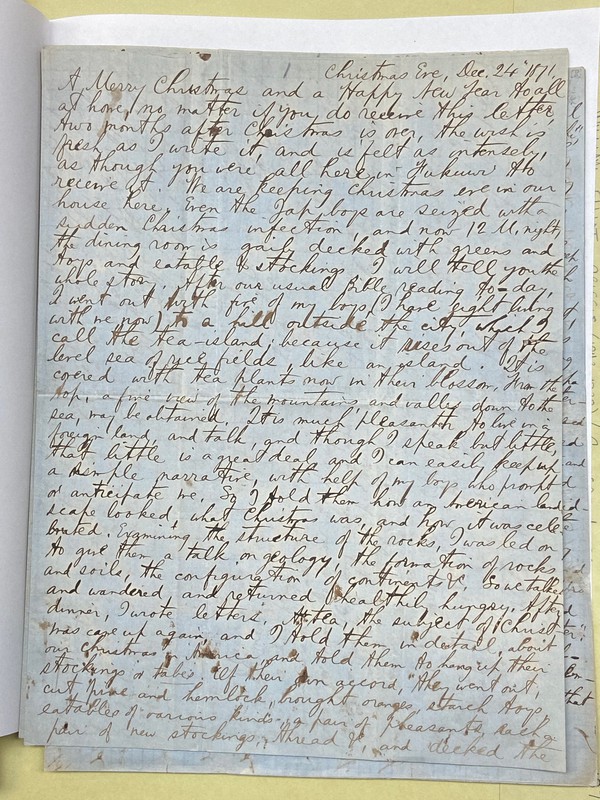 Christmas Eve, Dec. 24" 1871,
A Merry Christmas and a Happy New Year to all
at home, no matter if you do receive this letter,
two months after Christmas is over, the wish is
fresh as I write it, and is felt as intensely,
as though you were all here in Fukuwi to
receive it. We are keeping Christmas eve in our
house here. Even the Jap. boys are seized with a
sudden Christmas infection, and now 12 M. night,
the dining room is gaily decked with greens and
toys and eatables & stockings. I will tell you the
whole story. After our usual Bible reading to-day,
I went out with five of my boys, (I have eight living
with me now) to a hill outside the city, which I
call the tea-island, because it rises out of the
level sea of rice fields, like an island. It is
covered with tea plants now in their blossom, from the
top, a fine view of the mountains, and valley down to the
sea, may be obtained. It is much pleasanter to live in a
foreign land, and talk, and though I speak but little,
that little is a great deal and I can easily keep up
a simple narrative, with help of my boys who prompt
or anticipate me. So I told them how an American land-
scape looked, what Christmas was, and how it was cele-
brated. Examining the structure of the rocks, I was led on
to give them a talk on geology, the formation of rocks
and soils, the configuration of continents &c. So we talked
and wandered, and returned healthily hungry. After
dinner, I wrote letters. At tea, the subject of Christ-
mas came up again, and I told them in detail, about
our Christmas in America, and told them to hang up their
stockings or tabis. Of their own accord, they went out,
cut pine and hemlock, bought oranges, starch toys,
eatables of various kinds, a pair of pheasants, each a
pair of new stockings, thread &c and decked the